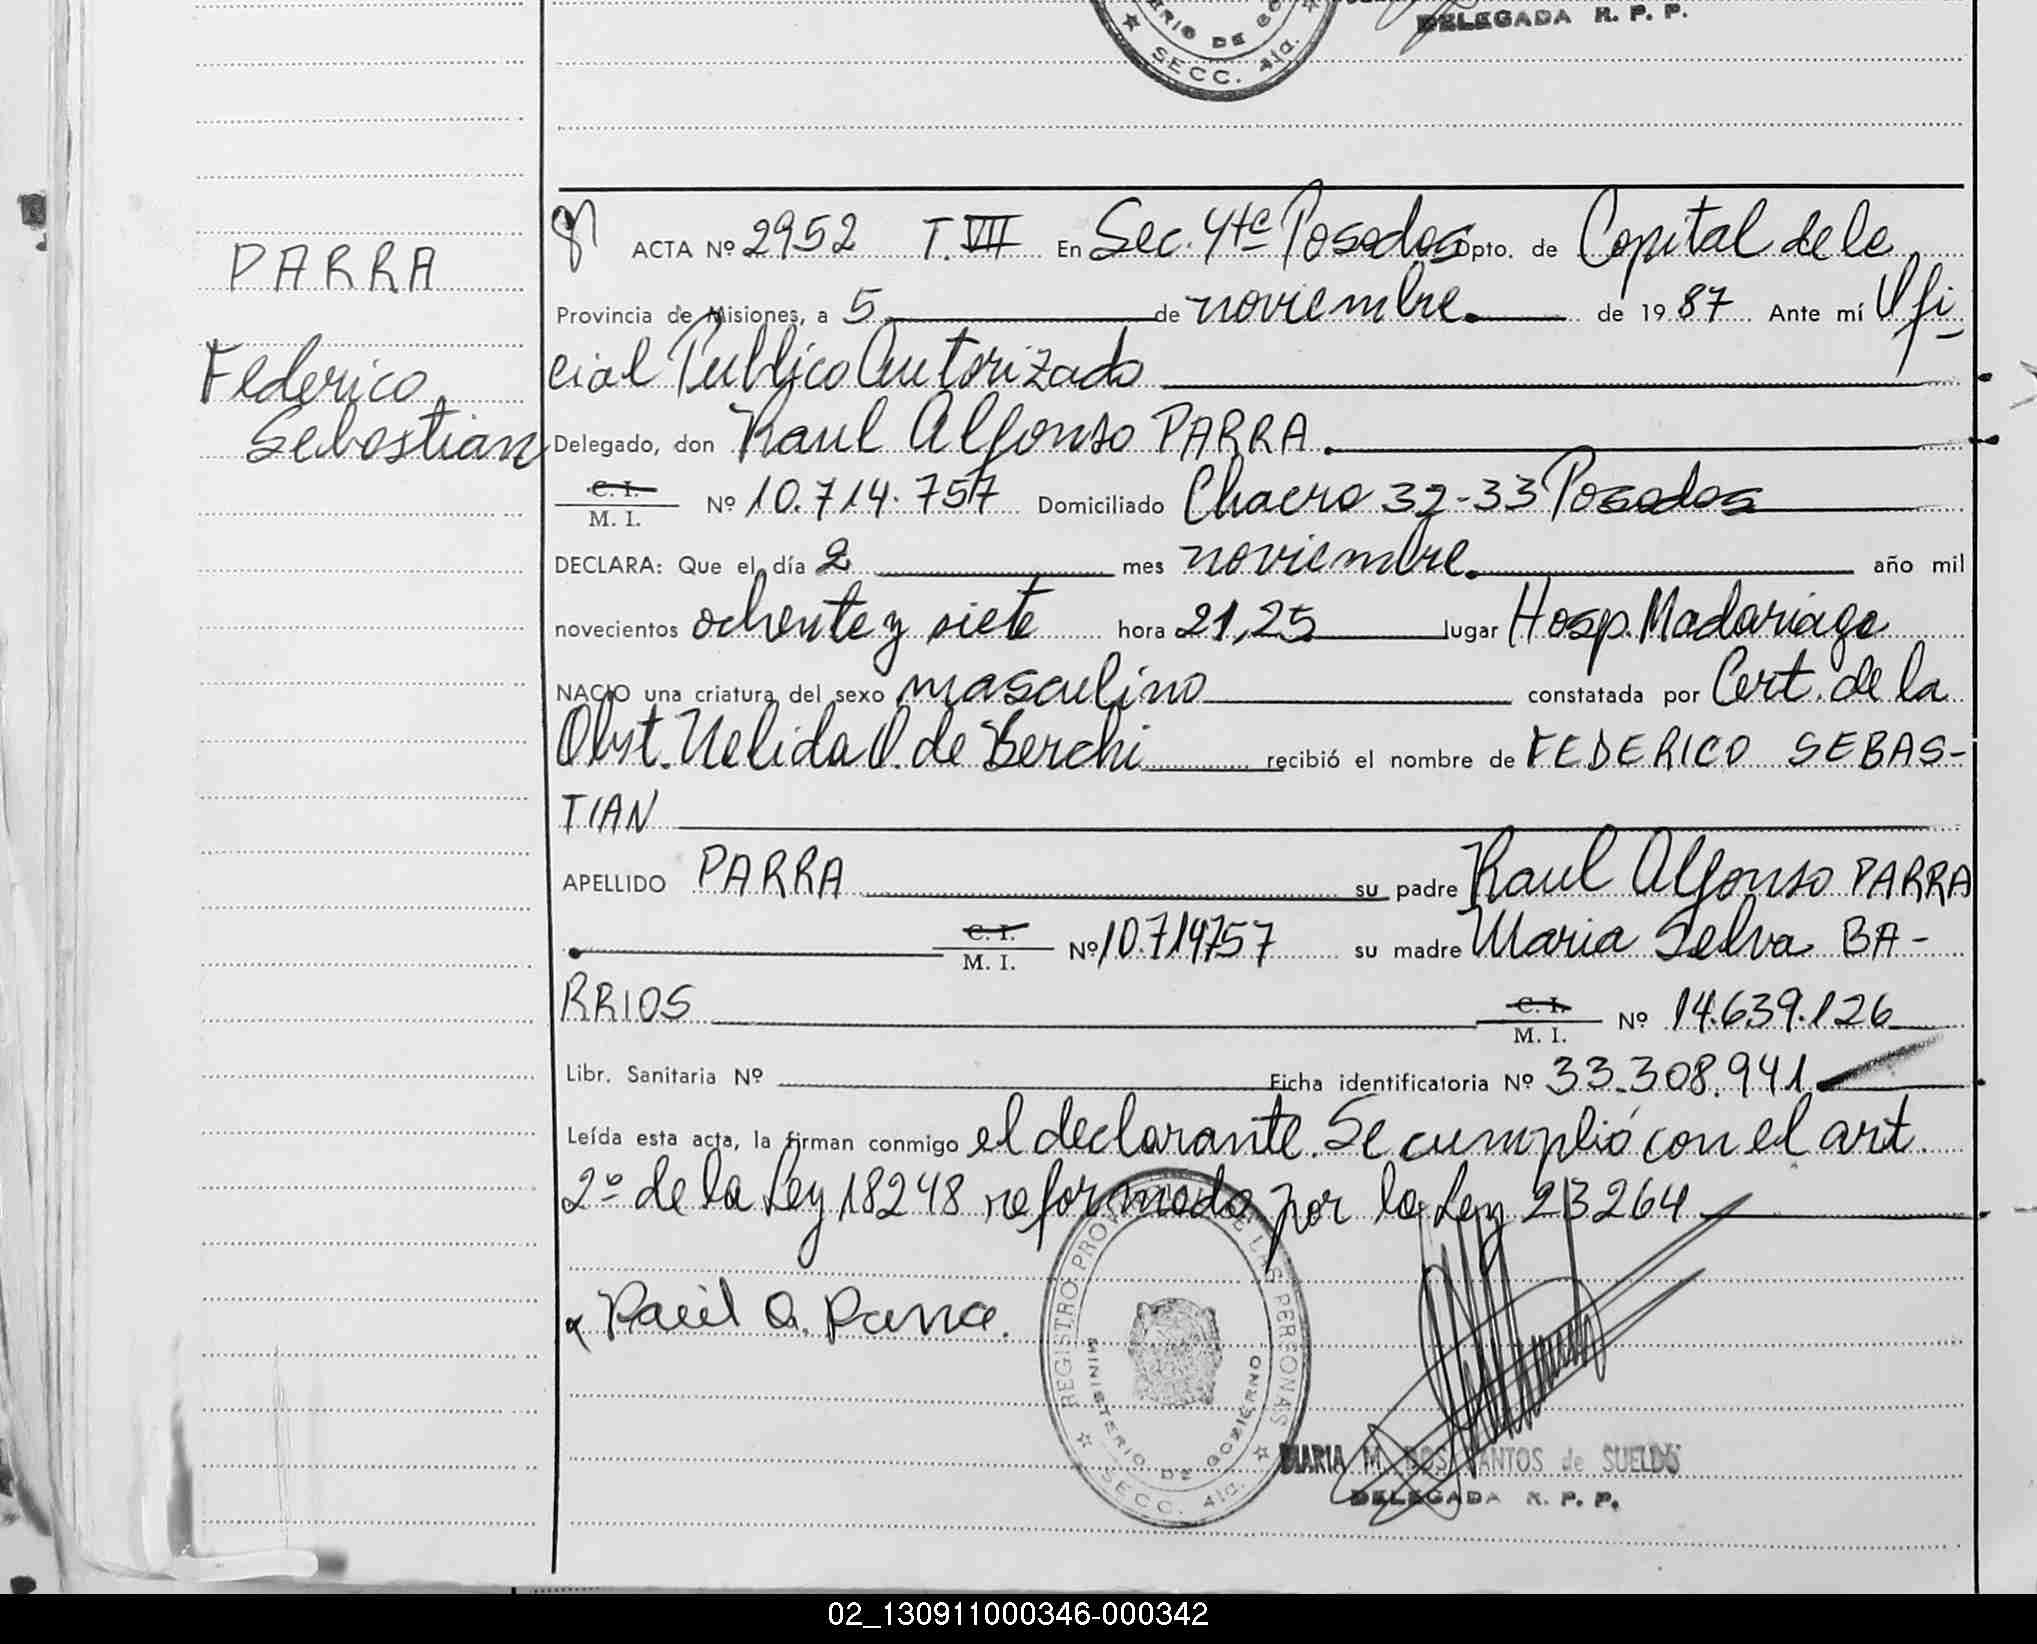 ERIO DE GO
SECC. 4ta.
DELEGADA R. P. P.
PARRA
Federico
Sebastian
ACTA Nº 2952 T. VII En Sec. 4ta Posadas Dpto. de Capital de la
Provincia de Misiones, a 5 de noviembre. de 1987 Ante mí Ofi-
cial Publico Autorizado
Delegado, don Raul Alfonso PARRA.
C. I.
M. I. Nº 10.714.757 Domiciliado Chacra 32-33 Posadas
DECLARA: Que el día 2 mes noviembre. año mil
novecientos ochenta y siete hora 21,25 lugar Hosp. Madariaga
NACIO una criatura del sexo masculino constatada por Cert. de la
Obst. Nelida O. de Berchi recibió el nombre de FEDERICO SEBAS-
TIAN
APELLIDO PARRA su padre Raul Alfonso PARRA
C. I.
M. I. Nº 10.714757 su madre Maria Selva BA-
RRIOS C. I.
M. I. Nº 14.639.126
Libr. Sanitaria Nº Ficha identificatoria Nº 33.308.941
Leída esta acta, la firman conmigo el declarante. Se cumplió con el art.
2º de la Ley 18248 reformado por la Ley 23264
Raúl A. Parra.
REGISTRO PROVINCIAL DE LAS PERSONAS
MINISTERIO DE GOBIERNO
SECC. 4ta.
MARIA M. DOS SANTOS de SUELDO
DELEGADA R. P. P.
02_130911000346-000342